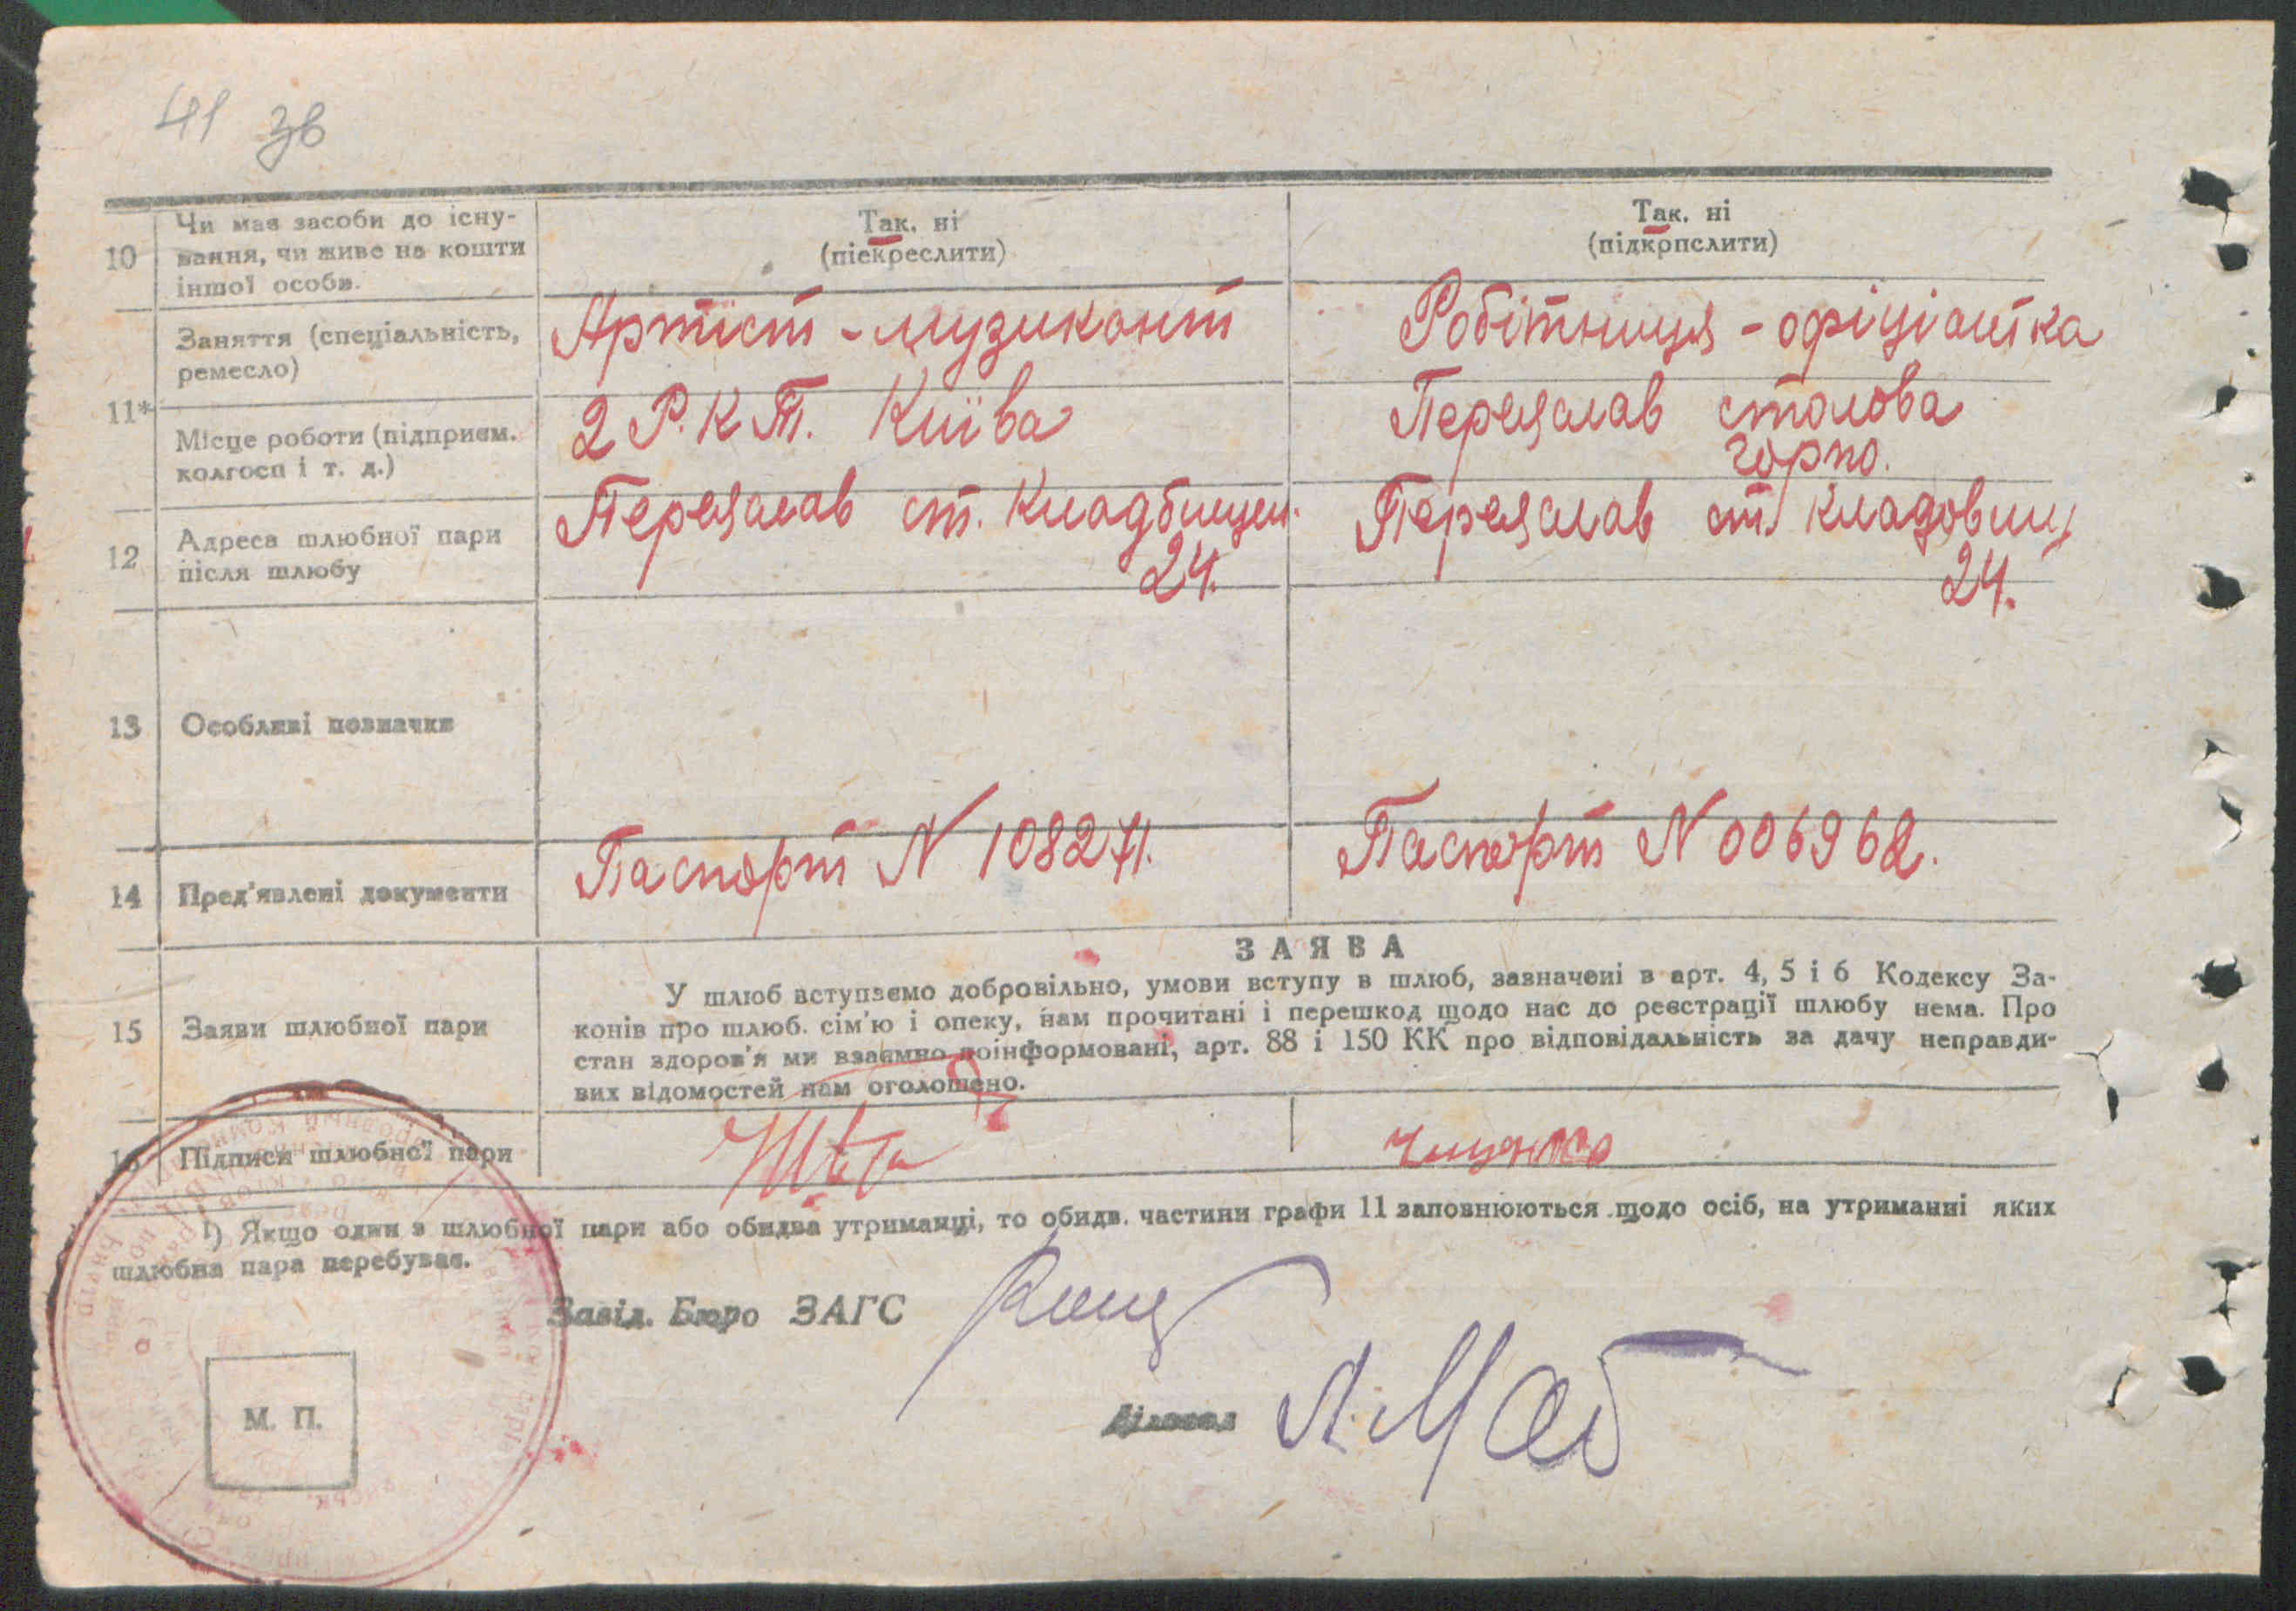 41 зв
10
Чи має засоби до існу-
вання, чи живе на кошти
іншої особи.
Так. ні
(піекреслити)
Так. ні
(підкрпслити)
11*
Заняття (спеціальність,
ремесло)
Артист - музикант
Робітниця - офіціантка
Місце роботи (підприєм.
колгосп і т. д.)
2 Р. К Т. Київа
Переяслав столова
горпо.
12
Адреса шлюбної пари
після шлюбу
Переяслав ст. Кладбищен.
24.
Переяслав ст. Кладовищ
24.
13
Особливі позначки
14
Пред'явлені документи
Паспорт N 108271.
Паспорт N 006962.
15
Заяви шлюбної пари
ЗАЯВА
У шлюб вступаємо добровільно, умови вступу в шлюб, зазначені в арт. 4, 5 і 6 Кодексу За-
конів про шлюб. сім'ю і опеку, нам прочитані і перешкод щодо нас до реєстрації шлюбу нема. Про
стан здоров'я ми взаємно поінформовані, арт. 88 і 150 КК про відповідальність за дачу неправди-
вих відомостей нам оголошено.
16
Підписи шлюбної пари
¹) Якщо один з шлюбної пари або обидва утриманці, то обидв. частини графи 11 заповнюються щодо осіб, на утриманні яких
шлюбна пара перебуває.
Завід. Бюро ЗАГС
Діловод
М. П.